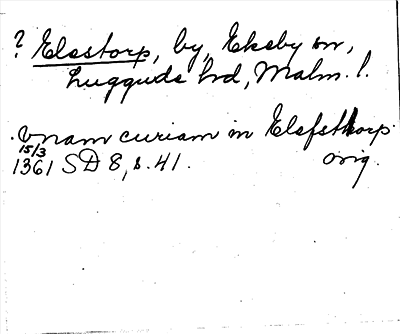 ? Elestorp, by, Ekeby sn,
Luggude hrd, Malm. l.
. Vnam curiam in Elefsthorp
15/3
1361 SD 8, s. 41. orig.